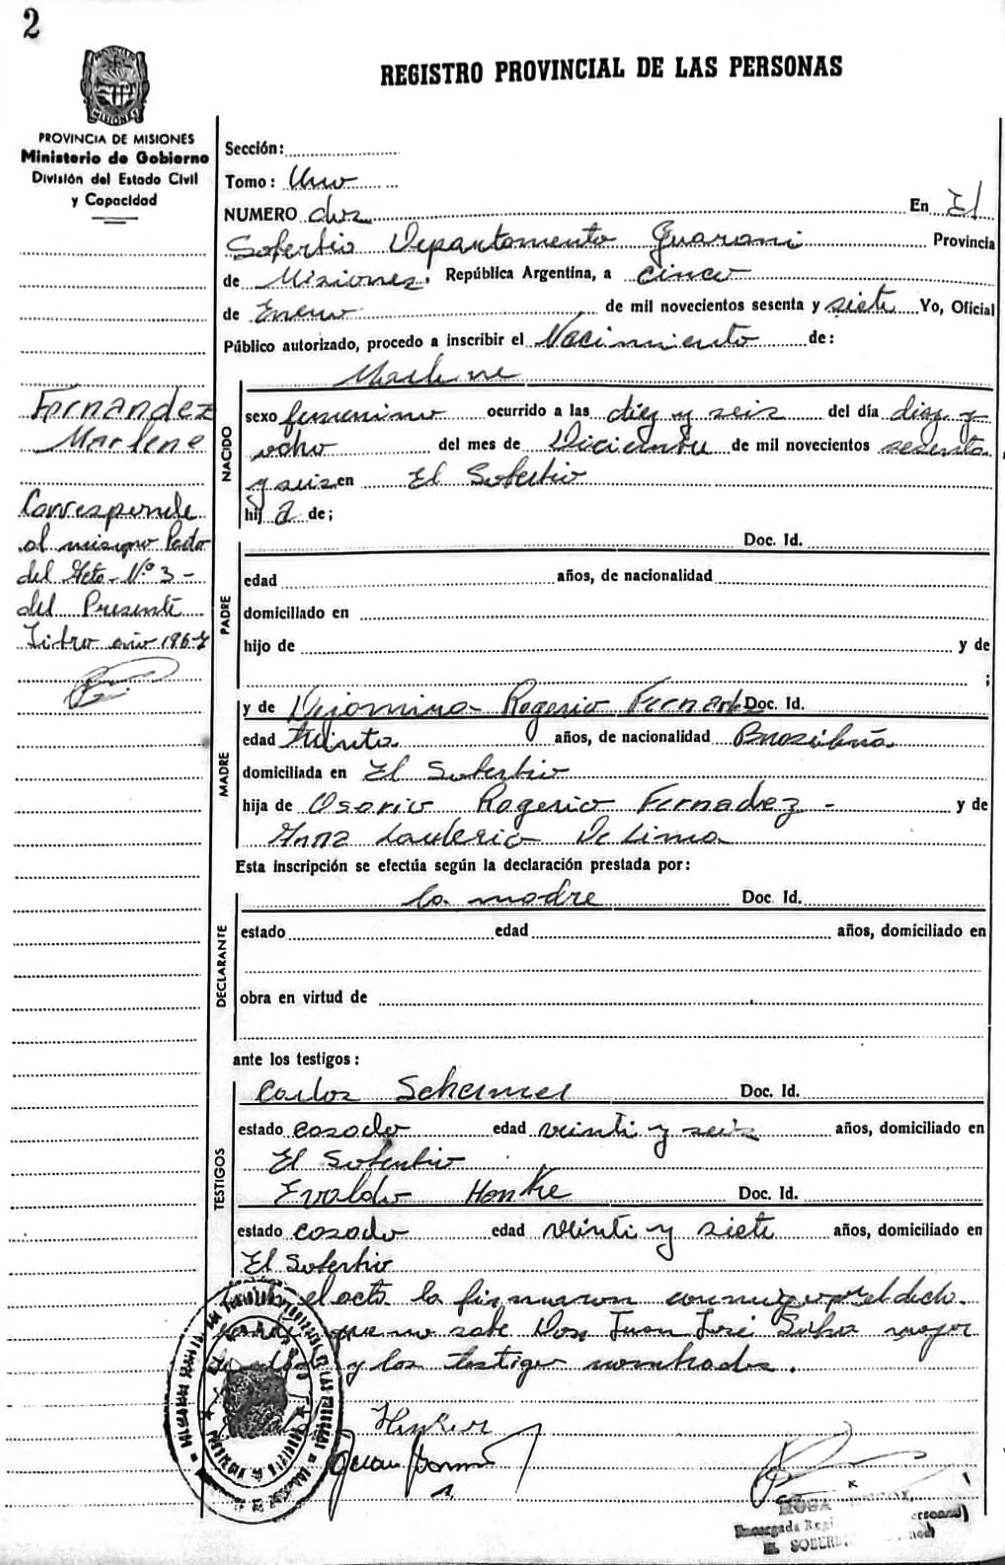 2
REGISTRO PROVINCIAL DE LAS PERSONAS
PROVINCIA DE MISIONES
Ministerio de Gobierno
División del Estado Civil
y Capacidad
Fernandez
Marlene
Corresponde
al mismo Parto
del Acta - Nº 3 -
del Presente
Libro año 1967
Sección:
Tomo: Uno
NUMERO dos En El
Soberbio Departamento Guarani Provincia
de Misiones, República Argentina, a cinco
de Enero de mil novecientos sesenta y siete Yo, Oficial
Público autorizado, procedo a inscribir el Nacimiento de:
Marlene
NACIDO
sexo femenino ocurrido a las diez y seis del día diez y
ocho del mes de Diciembre de mil novecientos sesenta
y seis en El Soberbio
hij a de;
PADRE
Doc. Id.
edad años, de nacionalidad
domiciliado en
hijo de y de
;
MADRE
y de Rogerio Fernandez Doc. Id.
edad treinta años, de nacionalidad Brasileña
domiciliada en El Soberbio
hija de Osorio Rogerio Fernadez - y de
Anna De Lima
Esta inscripción se efectúa según la declaración prestada por:
DECLARANTE
la madre Doc. Id.
estado edad años, domiciliado en
obra en virtud de
ante los testigos:
TESTIGOS
Carlos Schermer Doc. Id.
estado casado edad veinti y seis años, domiciliado en
El Soberbio
Evaldo Henke Doc. Id.
estado casado edad veinti y siete años, domiciliado en
El Soberbio
el acta la firmaron conmigo por el decla-
que no sabe Don Juan José Silva mayor
y los testigos nombrados.
Encargada
EL SOBERBIO